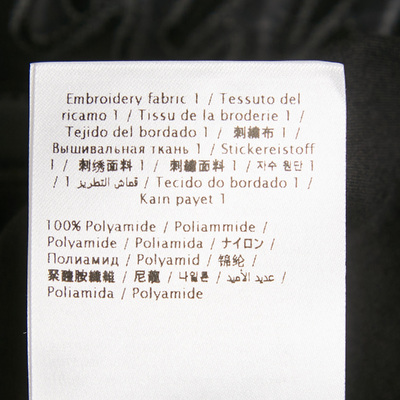 Embroidery fabric 1 / Tessuto del
ricamo 1 / Tissu de la broderie 1 /
Tejido del bordado 1 / 刺繍布 /
Вышивальная ткань 1 / Stickereistoff
1 / 刺绣面料 1 / 刺繡面料 1 / 자수 원단 1
/ 1 قماش التطريز / Tecido do bordado 1 /
Kain payet 1 /
100% Polyamide / Poliammide /
Polyamide / Poliamida / ナイロン /
Полиамид / Polyamid / 锦纶 /
聚醯胺纖維 / 尼龍 / 나일론 / عديد الأميد /
Poliamida / Polyamide